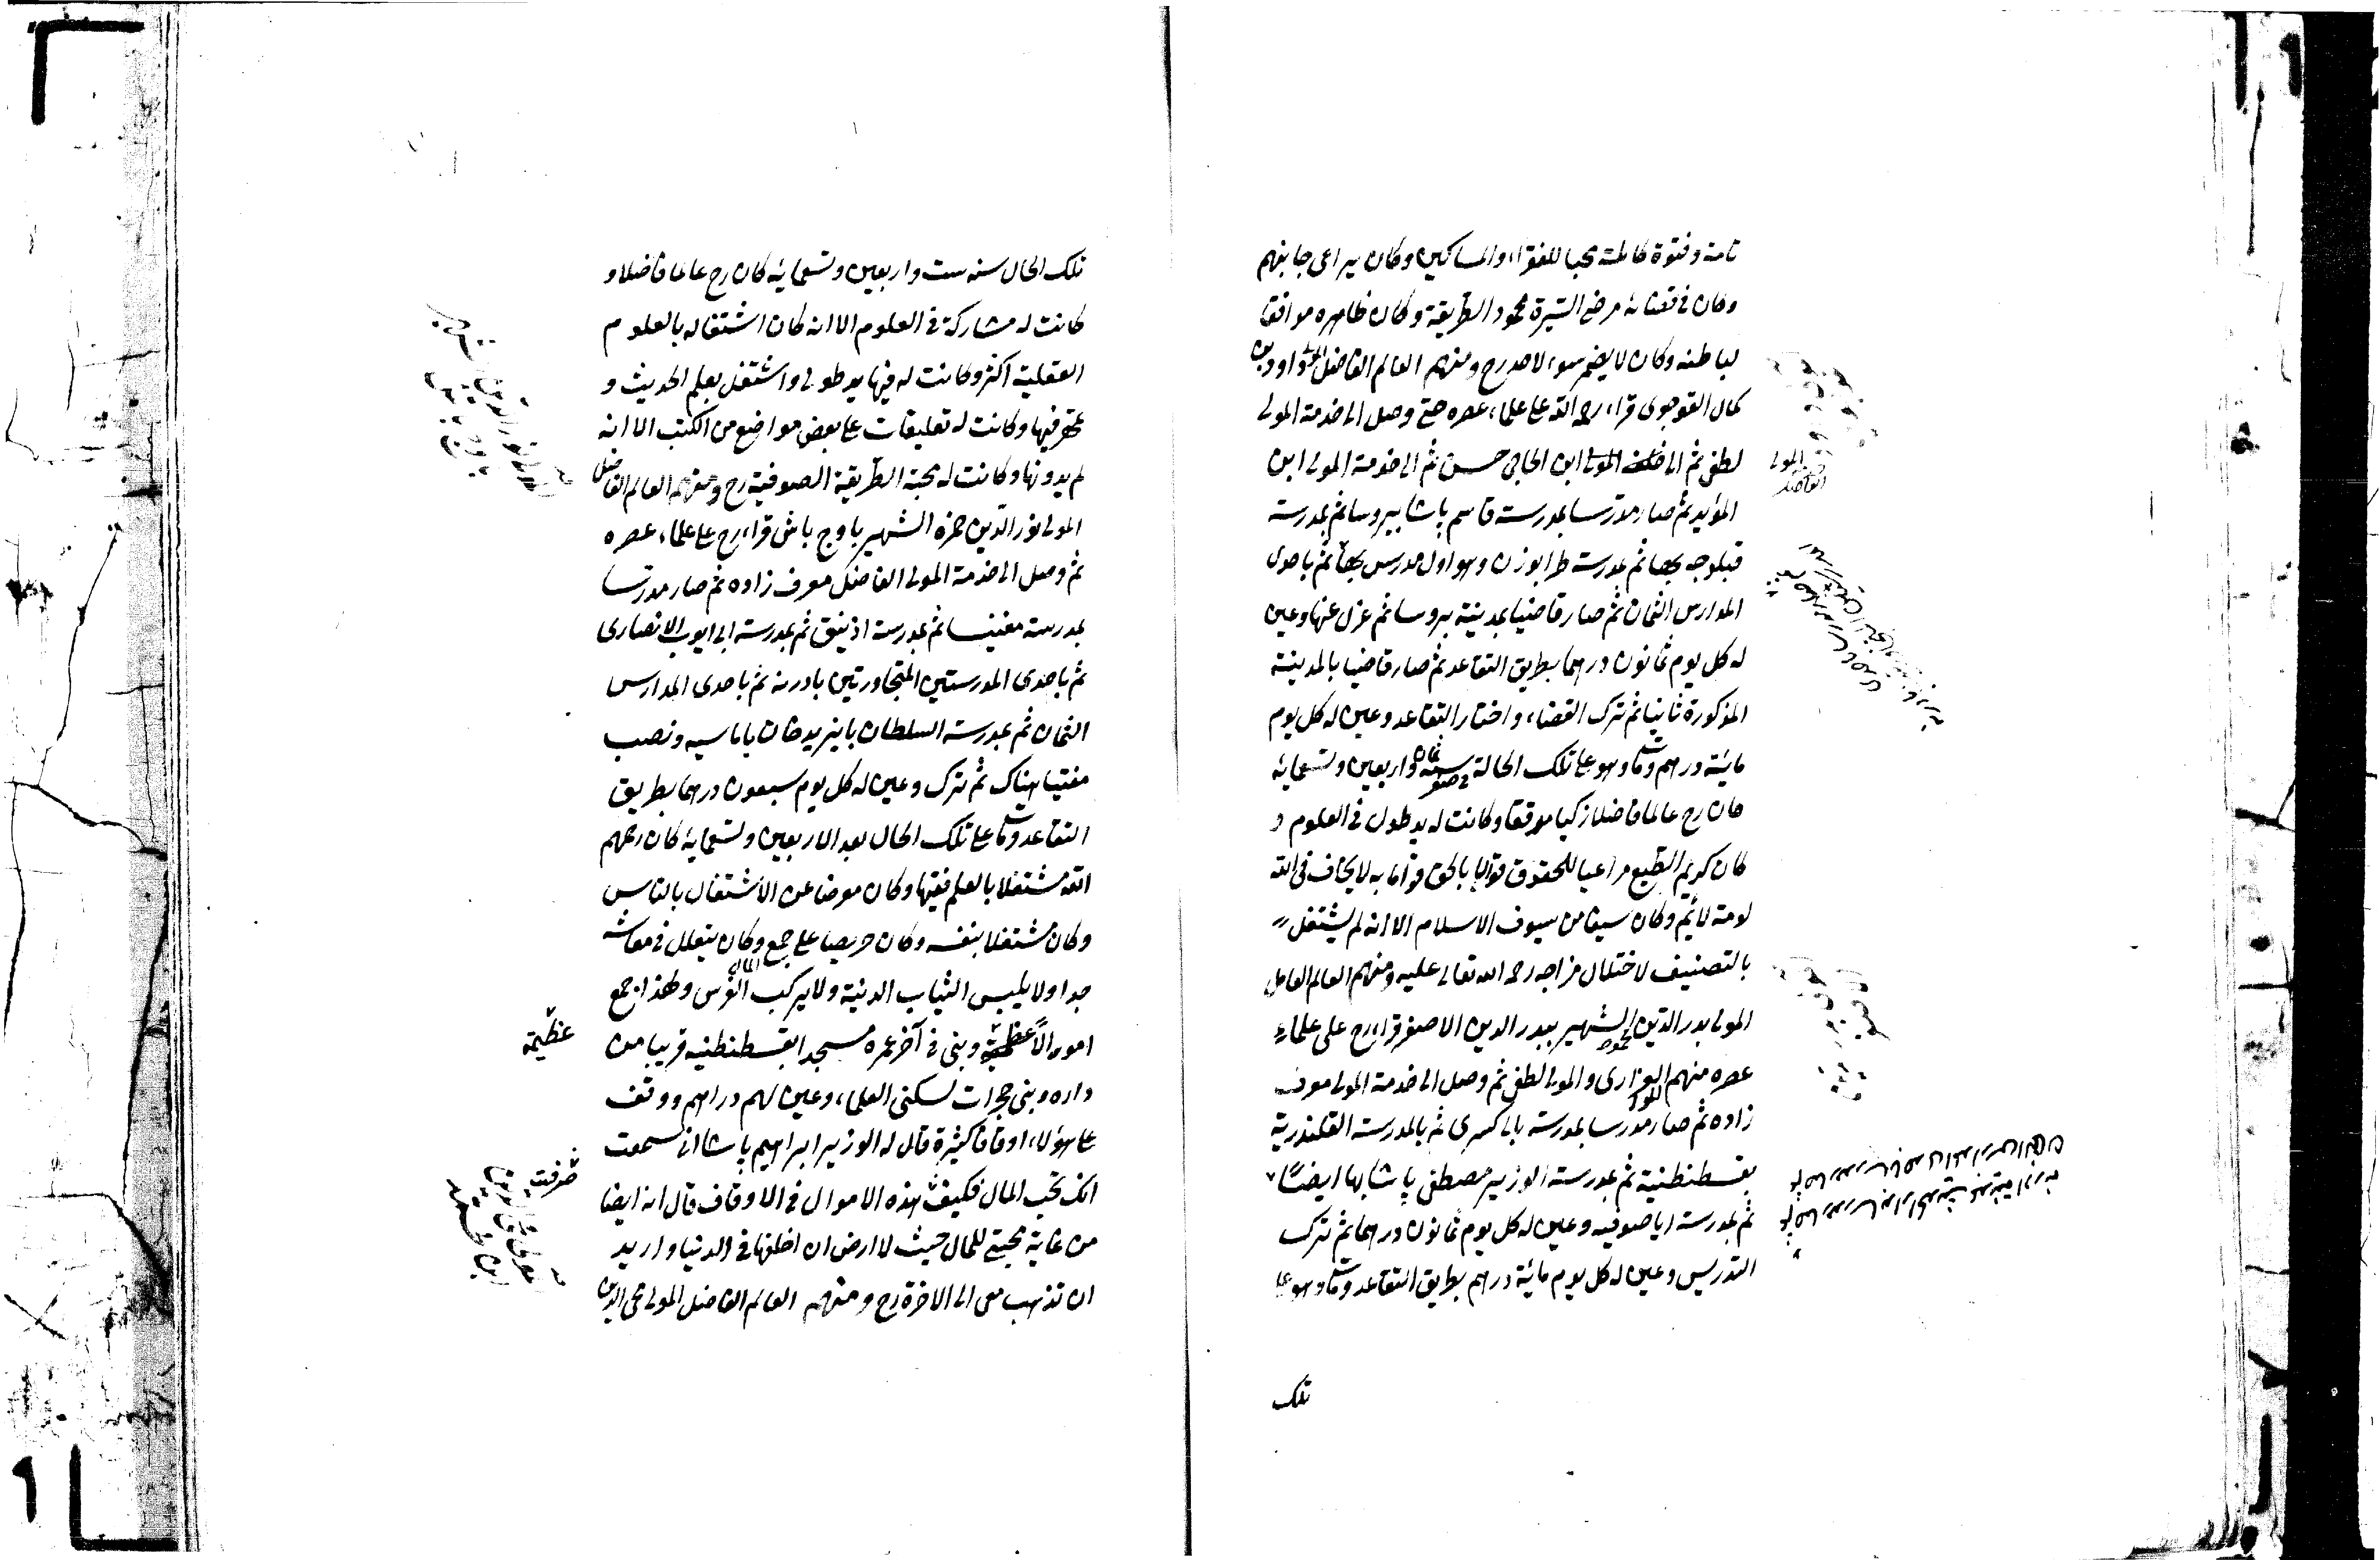 تامة وفتوة كاملة محبا للفقراء والمساكين وكان يراعى جانبهم
وكان فى قضائه مرضى السيرة محمود الطريقة وكان ظاهره موافقا
لباطنه وكان لا يضمر سوء لاحد رح ومنهم العالم الفاضل المولى داود بن
كمال القوجوى قراء رحمه الله على علماء عصره حتى وصل الى خدمة المولى
لطفى ثم الى خدمة المولى ابن الحاجى حسن ثم الى خدمة المولى ابن
المؤيد ثم صار مدرسا بمدرسة قاسم پاشا ببروسا ثم بمدرسة
قبلوجه بها ثم بمدرسة طرابوزن وهو اول مدرس بها ثم باحدى
المدارس الثمان ثم صار قاضيا بمدينة بروسا ثم عزل عنها وعين
له كل يوم ثمانون درهما بطريق التقاعد ثم صار قاضيا بالمدينة
المذكورة ثانيا ثم ترك القضاء واختار التقاعد وعين له كل يوم
مائة درهم ومات وهو على تلك الحالة فى سنة ثمان واربعين وتسعمائه
كان رح عالما فاضلا زكيا موفقا وكانت له يد طولى فى العلوم و
كان كريم الطبع مراعيا للحقوق قوالا بالحق قواما به لا يخاف فى الله
لومة لائم وكان سيفا من سيوف الاسلام الا انه لم يشتغل
بالتصنيف لاختلال مزاجه رحمه الله تعالى عليه ومنهم العالم العامل
المولى بدر الدين محمود الشهير ببدر الدين الاصغر قراء رح على علماء
عصره منهم المولى الفنارى والمولى لطفى ثم وصل الى خدمة المولى معرف
زاده ثم صار مدرسا بمدرسة بالى كسرى ثم بالمدرسة القلندرية
بقسطنطنية ثم بمدرسة الوزير مصطفى پاشا بها ايضًا
ثم بمدرسة اياصوفيه وعين له كل يوم ثمانون درهما ثم ترك
التدريس وعين له كل يوم مائة درهم بطريق التقاعد ومات وهو على
تلك
المولى
الفاضل
تلك الحال سنه ست واربعين وتسعمائه كان رح عالما فاضلا و
كانت له مشاركة فى العلوم الا انه كان اشتغاله بالعلوم
العقلية اكثر وكانت له فيها يد طولى واشتغل بعلم الحديث و
تمهر فيها وكانت له تعليقات على بعض مواضع من الكتب الا انه
لم يدونها وكانت له محبة الطريقة الصوفية رح ومنهم العالم الفاضل
المولى نور الدين حمزه الشهير باوج باش قراء رح على علماء عصره
ثم وصل الى خدمة المولى الفاضل معرف زاده ثم صار مدرسا
بمدرسة مغنيسا ثم بمدرسة ازنيق ثم بمدرسة ابى ايوب الانصارى
ثم باحدى المدرستين المتجاورتين بادرنه ثم باحدى المدارس
الثمان ثم بمدرسة السلطان بايزيد خان باماسيه ونصب
مفتيا هناك ثم ترك وعين له كل يوم سبعون درهما بطريق
التقاعد ومات على تلك الحال بعد الاربعين وتسعمايه كان رحمهم
الله مشتغلا بالعلم فقيها وكان معرضا عن الاشتغال بالناس
وكان مشتغلا بنفسه وكان حريصا على جمع المال وكان يتقلل فى معاشه
جدا ولا يلبس الثياب الدنية ولا يركب الفرس ولهذا جمع
اموالًا عظيمة وبنى فى آخر عمره مسجدا بقسطنطنيه قريبا من
عظيمة
داره وبنى حجرات لسكنى العلماء وعين لهم دراهم ووقف
على هؤلاء اوقافا كثيرة قال له الوزير ابراهيم پاشا انى سمعت
انك تحب المال فكيف هذه الاموال فى الاوقاف قال انه ايضا
صرفت
من غاية محبتى للمال حيث لا ارض ان اخلفها فى الدنيا واريد
ان تذهب معى الى الاخرة رح ومنهم العالم الفاضل المولى محى الدين